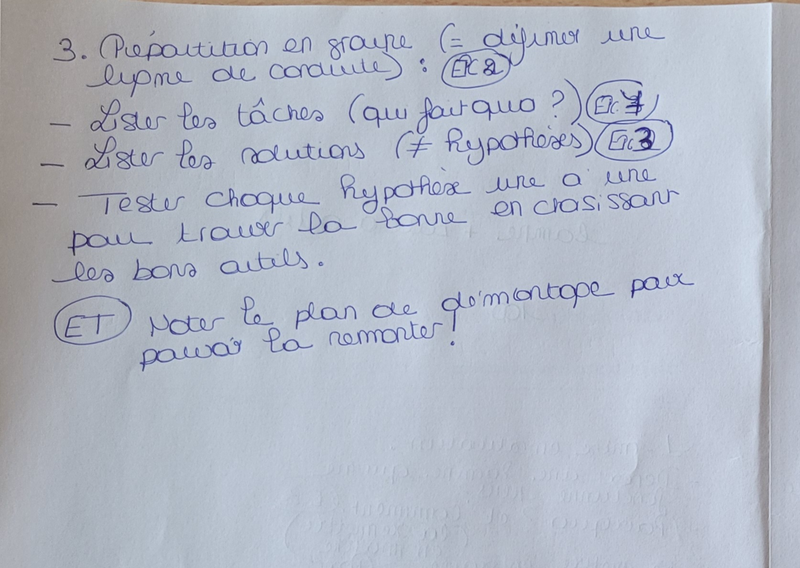 3. Répartition en groupe (= définer une
ligne de conduite) : Ex 2
- Lister les tâches (qui fait quo ?) Ex 1
- Lister les solutions (≠ hypothèses) Ex 3
- Tester chaque hypothèse une à une
pour trouver la bonne en choisissant
les bons outils.
ET Noter le plan de démontage pour
pouvoir la remonter !